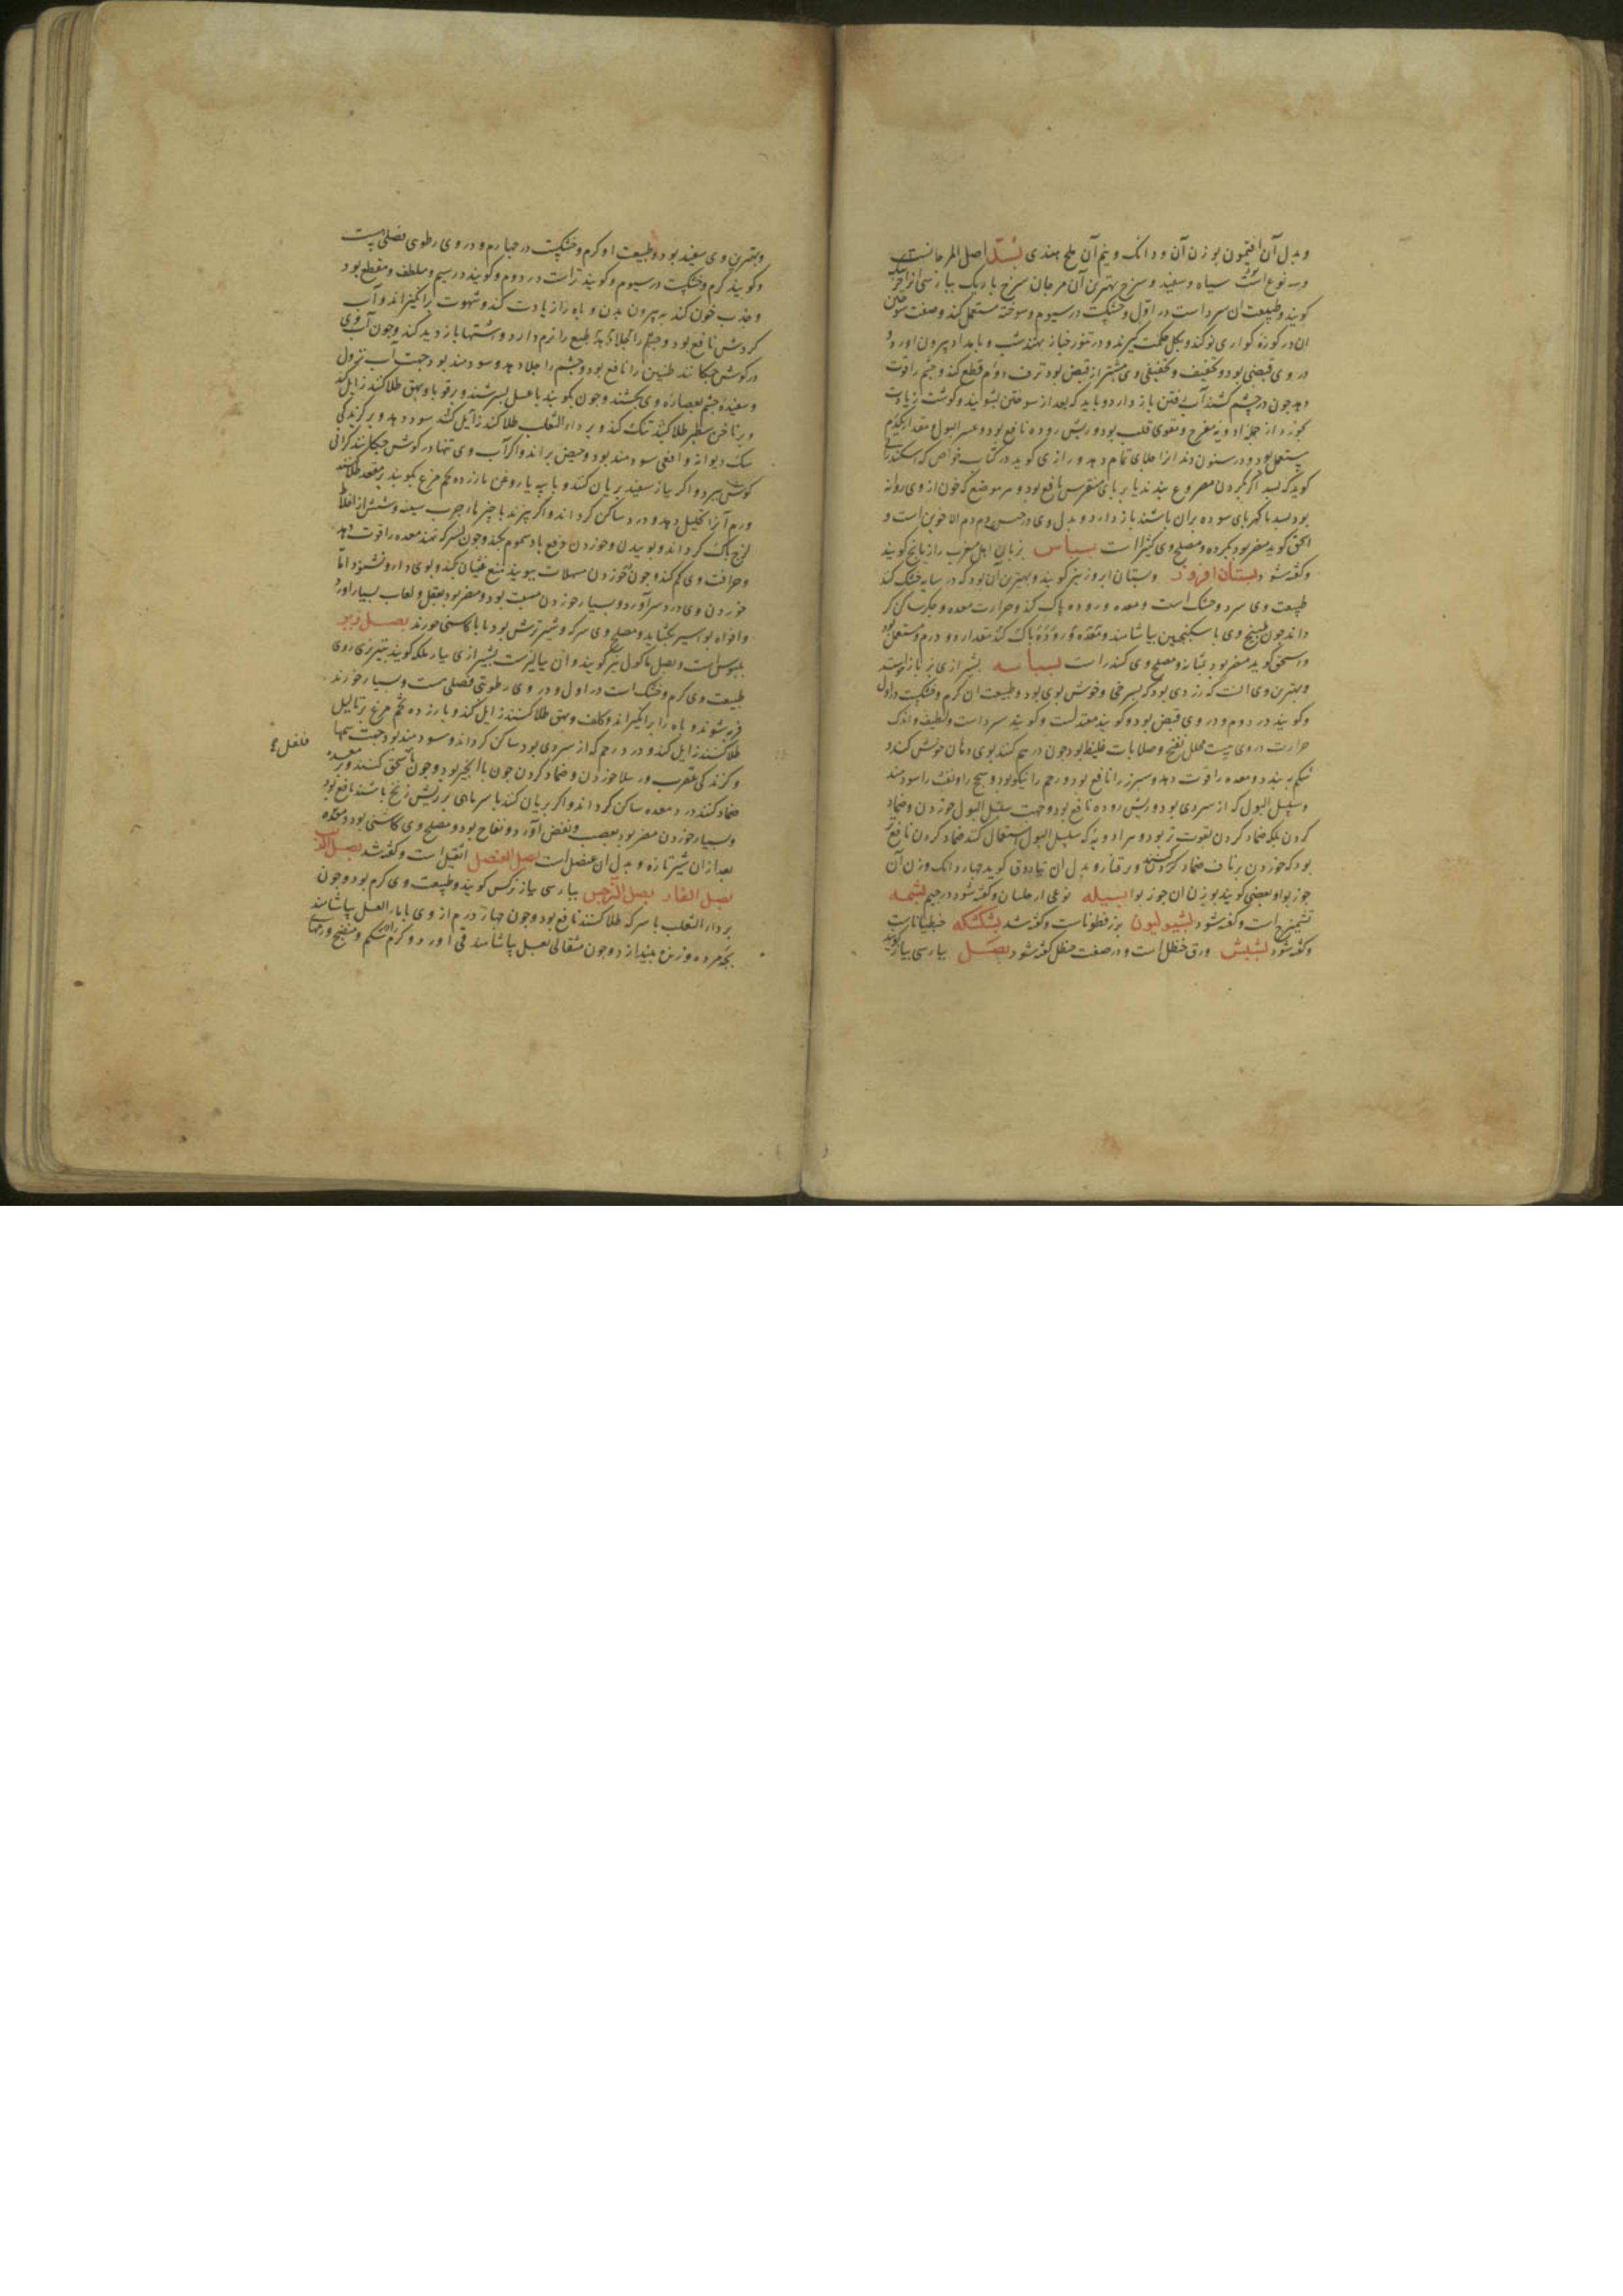 و بدل آن افتیمون بوزن آن و دانک و نیم آن ملح هندی بسد اصل المرجانست
و سه نوع است سیاه و سفید و سرخ بهترین آن مرجان سرخ باریک بپارسی
کویند و طبیعت ان سرد است در اول و خشکست در سیوم و سوخته مستعمل کنند و صفت سوختن
ان در کوزه نو کند و بکل حکمت کیرند و در تنور خباز نهند شب و بامداد بیرون اورد و
در وی قبضی بود و تجفیف و تجفیفی وی بیشتر از قبض بود نزف دم قطع کند و چشم را قوت
دهد چون در چشم کشند آب رفتن باز دارد و باید که بعد از سوختن بشویند و کوشت زیادت
بخورد از جمله ادویه مفرح و مقوی قلب بود و ریش روده نافع بود و عسر البول مقدار یکدرم
مستعمل بود و در سنون دندانرا جلای تمام دهد و رازی کوید در کتاب خواص که اسکندر
کوید که بسد اکر بکردن مصروع بندند یا بر پای منقرس نافع بود و هر موضع که خون از وی روانه
بود بسد با کهربای سوده بران پاشند باز دارد و بدل وی در حبس دم دم الاخوین است و
اسحق کوید مضر بود بکرده و مصلح وی کثیرا است بسباس بزبان اهل مغرب رازیانج کویند
و کفته شود بستان افروز و بستان ابروز نیز کویند و بهترین آن بود که در سایه خشک کند
طبیعت وی سرد و خشک است و معده و روده پاک کند و حرارت معده و جکر ساکن کر
داند چون طبیخ وی با سکنجبین بیاشامند و معده و روده پاک کند مقدار دو درم مستعمل بود
و اسحق کوید مضر بود بمثانه و مصلح وی کندر است بسباسه بشیرازی بزباز است
و بهترین وی انست که زردی بود که بسرخی و خوش بوی بود و طبیعت ان کرم و خشکست در اول
و کویند در دوم و در وی قبض بود و کویند معتدلست و کویند سرد است و لطیف و اندک
حرارت در وی هست محلل نفخ و صلابات غلیظ بود چون در هم کنند بوی دهان خوش کند و
شکم ببندد و معده را قوت دهد و سپرز را نافع بود و رحم را نیکو بود و سحج را و نفث را سودمند
و سلسل البول که از سردی بود و ریش روده نافع بود و جهت سلسل البول خوردن و ضماد
کردن بلکه ضماد کردن بقوت تر بود و هر ادویه که سلسل البول استعمال کنند ضماد کردن نافع تر
بود که خوردن بر ناف ضماد کردن کنند و بر قفا و بدل ان تیادوق کوید چهار دانک وزن آن
جوز بوا و بعضی کویند بوزن ان جوز بوا بسیله نوعی از جلبان و کفته شود در جیم بشمه
تشمیزج است و کفته شود بشیولیون بزر قطوناست و کفته شد بشکشکه خنطیاناست
و کفته شود بشبش ورق حنظل است و در صفت حنظل کفته شود بصل بپارسی پیاز کویند
و بهترین وی سفید بود و طبیعت او کرم و خشکست در چهارم و در وی رطوبی فضلی هست
و کویند کرم و خشکست در سیوم و کویند تراست در دوم و کویند در سیم و ملطف و مقطع بود
و جذب خون کند به بیرون بدن و باه را زیادت کند و شهوت برانکیزاند و آب
کردش نافع بود و چشم را جلا دهد طبع را نرم دارد و اشتها باز دید کند و چون آب وی
در کوش چکانند طنین را نافع بود و چشم را جلا دهد و سودمند بود جهت آب نزول
و سفیده چشم بعصاره وی بکشند و چون بکوبند با عسل بسرشند و بر قوبا و بهق طلا کنند زایل کند
و بر ناخن سطبر طلا کنند تنک کند و بر داء الثعلب طلا کنند زایل کند سود دهد و بر کزیدکی
سک دیوانه و افعی سودمند بود و حیض براند و اکر آب وی تنها در کوش چکانند کرانی
کوش ببرد و اکر پیاز سفید بریان کنند و با پیه یا روغن یا زرده تخم مرغ بکوبند بر مقعد طلا کنند
ورم آنرا تحلیل دهد و درد ساکن کرداند و اکر بپزند با چیزها چرب سینه و شش از اخلاط
لزج پاک کرداند و بوییدن و خوردن دفع باد سموم بکند و چون بسرکه نهند معده را قوت دهد
و حرافت وی کم کند و چون خوردن مسهلات ببویند منع غثیان بکند و بوی دارو نشنود اما
خوردن وی درد سر آورد و بسیار خوردن مسبت بود و مضر بود بعقل و لعاب بسیار اورد
و افواه بواسیر بکشاید و مصلح وی سرکه و شیر ترش بود یا با کاسنی خورند بصل زیر
بلبوس است و بصل ماکول نیز کویند و آن پیازیست بشیرازی بیار بلکه کویند بتبریزی زوی
طبیعت وی کرم و خشک است در اول و در وی رطوبتی فضلی هست و بسیار خورند
فربه شوند و باه را برانکیزاند و کلف و بهق طلا کنند زایل کند و با زرده تخم مرغ بر ثالیل
طلا کنند زایل کند و درد رحم که از سردی بود ساکن کرداند و سودمند بود جهت سمها
و کزندکی عقرب و رتیلا خوردن و ضماد کردن چون با انجیر بود و چون با سحق کنند و بر معده
ضماد کنند درد معده ساکن کرداند و اکر بریان کنند با سر ماهی بر ریش زنخ پاشند نافع بود
و بسیار خوردن مضر بود بعصب و نغض آورد و نفاخ بود و مصلح وی کاسنی بود و معده
بعد از ان شیر تازه و بدل ان عنصل است بصل العنصل اشقیل است و کفته شد
بصل الفار بصل النرجس بپارسی پیاز نرکس کویند و طبیعت وی کرم بود و چون
بر داء الثعلب با سرکه طلا کنند نافع بود و چون چهار درم از وی با ماء العسل بیاشامند
بچه مرده و زنده بیندازد و چون مثقالی بعسل بیاشامند قی اورد و کرم شکم و منضج ورمهای
فلفل